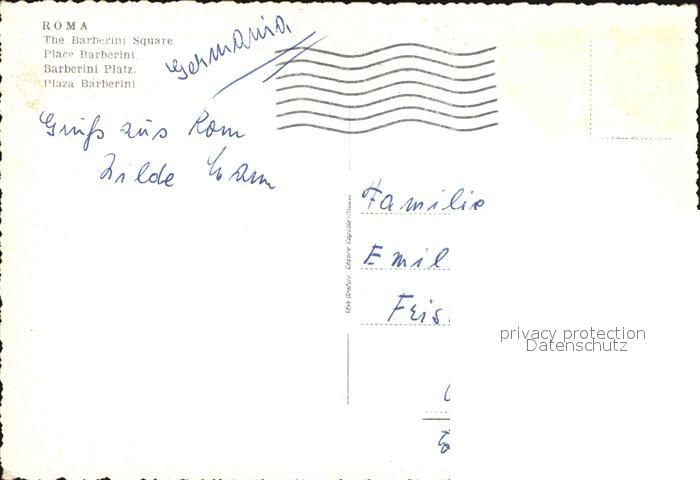 ROMA
The Barberini Square
Place Barberini.
Barberini Platz.
Plaza Barberini
Germania
Gruß aus Rom
Familie
Emil
privacy protection
Datenschutz